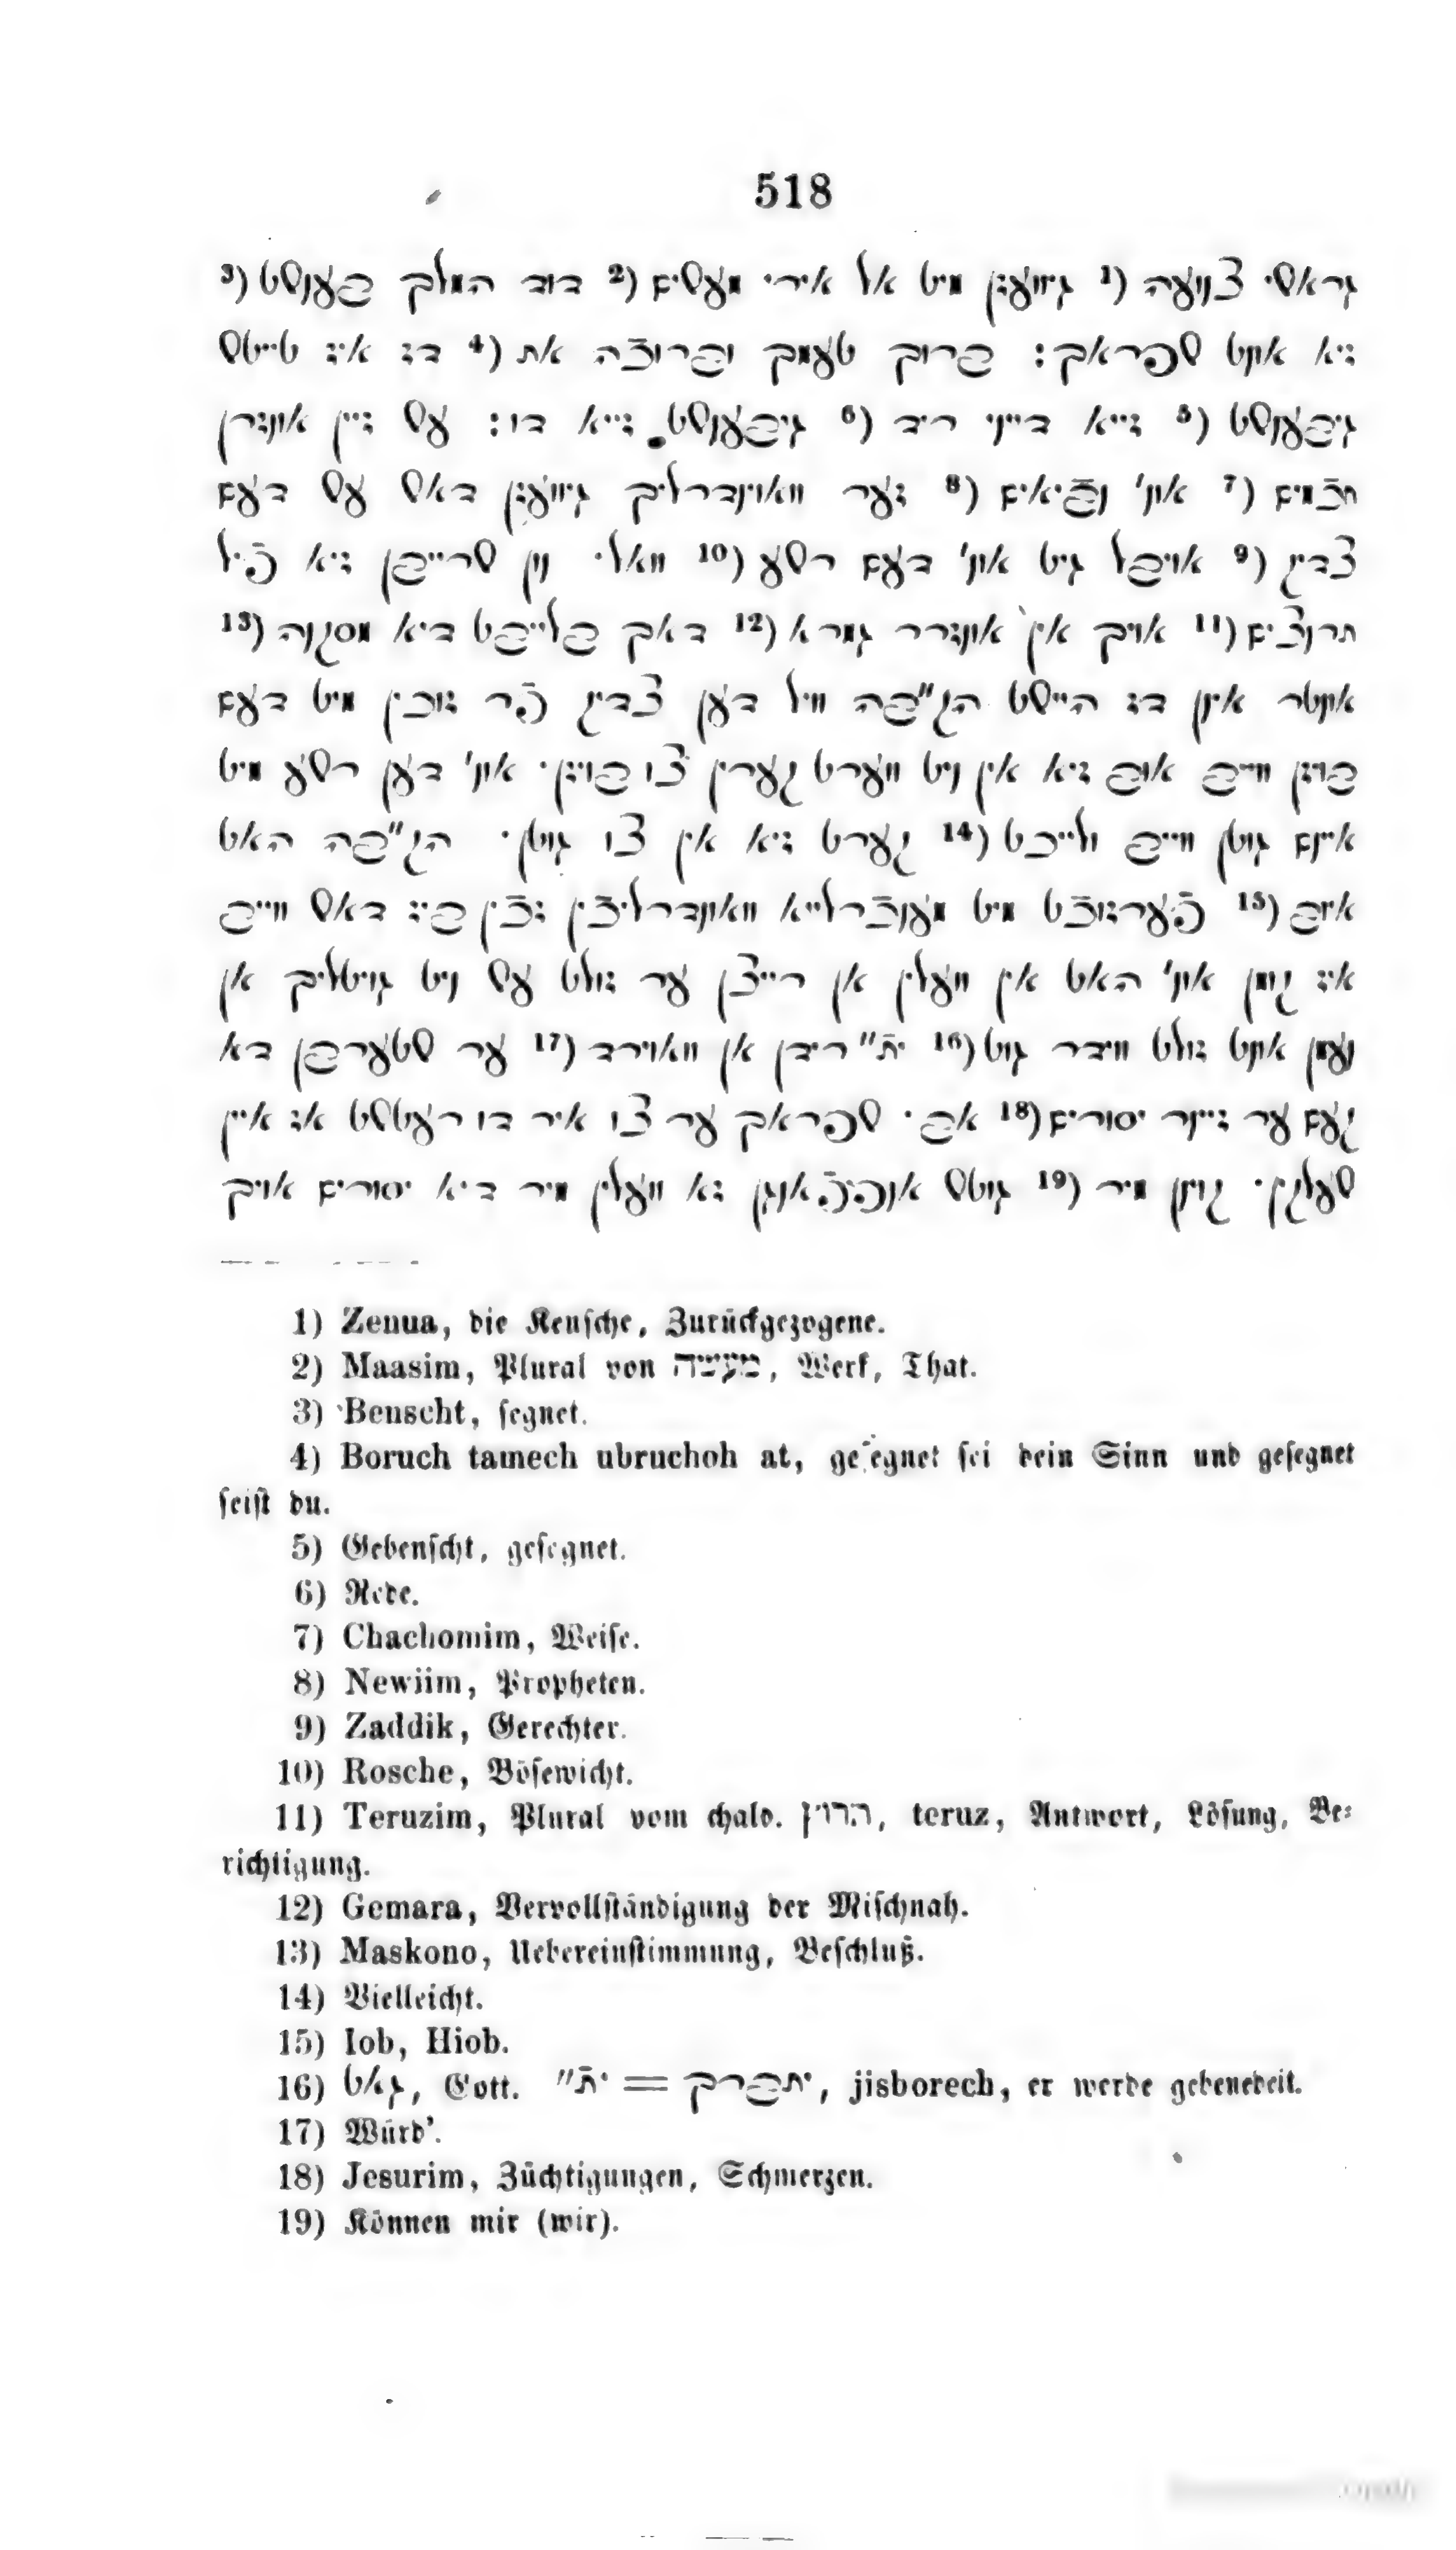 518
גראשי צנועה (1 גיוועזן מיט אל אירי מעשים (2 דוד המלך בענשט (3
זיא אונט שפראך: ברוך טעמך וברוכה את (4 דז איז טייטש
גיבענשט (5 זייא דייני ריד (6 גיבענשט זייא דו: עש זיין אונזרן
חכמים (7 אונ' נביאים (8 זער וואונדרליך גיוועזן דאש עש דעם
צדיק (9 אויבל גיט אונ' דעם רשע (10 וואל· ווען שרייבן זיא פֿיל
תרוצים (11 אויך אין אונזרר גמרא (12 דאך בלייבט דיא מסקנה (13
אונטר אינן דז הײשט הק"בה וויל דען צדיק פֿר זוכין מיט דעם
בוזן ווייב אוב זיא אין ניט ווערט קערין צו בויזן· אונ' דען רשע מיט
איינם גוטן ווייב ולייכט (14 קערט זיא אין צו גוטן· הק"בה האט
איוב (15 פֿערזוכט מיט מענכרלייא וואונדרליכין זכין ביז דאש ווייב
איז קומן אונ' האט אין וועלין אן רייצן ער זולט עש ניט גויטליך אן
נעמן אונט זולט ווידר גוט (16 ית" רידן אן וואוירד (17 ער שטערבן דא
קעם ער זיינר יסורים (18 אב· שפראך ער צו איר דו רעטשט אז איין
שעלקין· קוינן מיר (19 גוטש אנפפֿאנגן זא וועלין מיר דיא יסורים אויך
1) Zenua, die Keuſche, Zurückgezogene.
2) Maasim, Plural von מעשה, Werk, That.
3) Benscht, ſegnet.
4) Boruch tamech ubruchoh at, geſegnet ſei dein Sinn und geſegnet
ſeiſt du.
5) Gebenſcht, geſegnet.
6) Rede.
7) Chachomim, Weiſe.
8) Newiim, Propheten.
9) Zaddik, Gerechter.
10) Rosche, Böſewicht.
11) Teruzim, Plural vom chald. תרוץ, teruz, Antwort, Löſung, Be-
richtigung.
12) Gemara, Vervollſtändigung der Miſchnah.
13) Maskono, Uebereinſtimmung, Beſchluß.
14) Vielleicht.
15) Iob, Hiob.
16) גאט, Gott. ית" = יתברך, jisborech, er werde gebenedeit.
17) Würd'.
18) Jesurim, Züchtigungen, Schmerzen.
19) Können mir (wir).